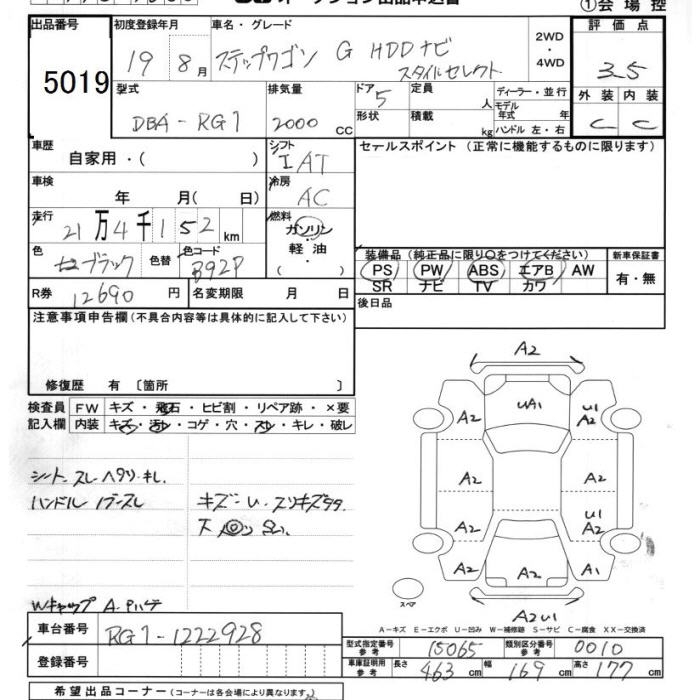 ①会場控
出品番号 初度登録年月 車名・グレード 評価点
5019
19年8月
ステップワゴン G HDDナビ
スタイルセレクト
2WD
・
4WD
3.5
型式 排気量 ドア 定員 ディーラー・並行 外装 内装
DBA-RG1 2000cc 5 人 モデル年式 年
形状 積載 kg ハンドル 左・右 C C
車歴 シフト セールスポイント(正常に機能するものに限ります)
自家用・( ) IAT
車検 冷房
年 月( 日) AC
走行 燃料
21万4千152km ガソリン
軽油
・
色 色替 色コード
ブラック B92P
装備品(純正品に限り○をつけてください) 新車保証書
PS PW ABS エアB AW 有・無
SR ナビ TV カワ
R券 12690円 名変期限 月 日
後日品
注意事項申告欄(不具合内容等は具体的に記入して下さい)
修復歴 有 〔箇所 〕
検査員 FW キズ・飛石・ヒビ割・リペア跡・×要
記入欄 内装 キズ・汚レ・コゲ・穴・スレ・キレ・破レ
シート、スレ ヘタリ・キレ、
ハンドル
キズ
Wキャップ A.
A2
UA1
A2 U1 A2
A2 A2
A2 U1 A1
A2 A2 A1
A2U1
スペア
A-キズ E-エクボ U-凹み W-補修跡 S-サビ C-腐食 XX-交換済
車台番号 RG1-1222928
登録番号
型式指定番号 参考 15065 類別区分番号 参考 0010
車庫証明用 参考 長さ 463cm 幅 169cm 高さ 177cm
希望出品コーナー(コーナーは各会場により異なります)